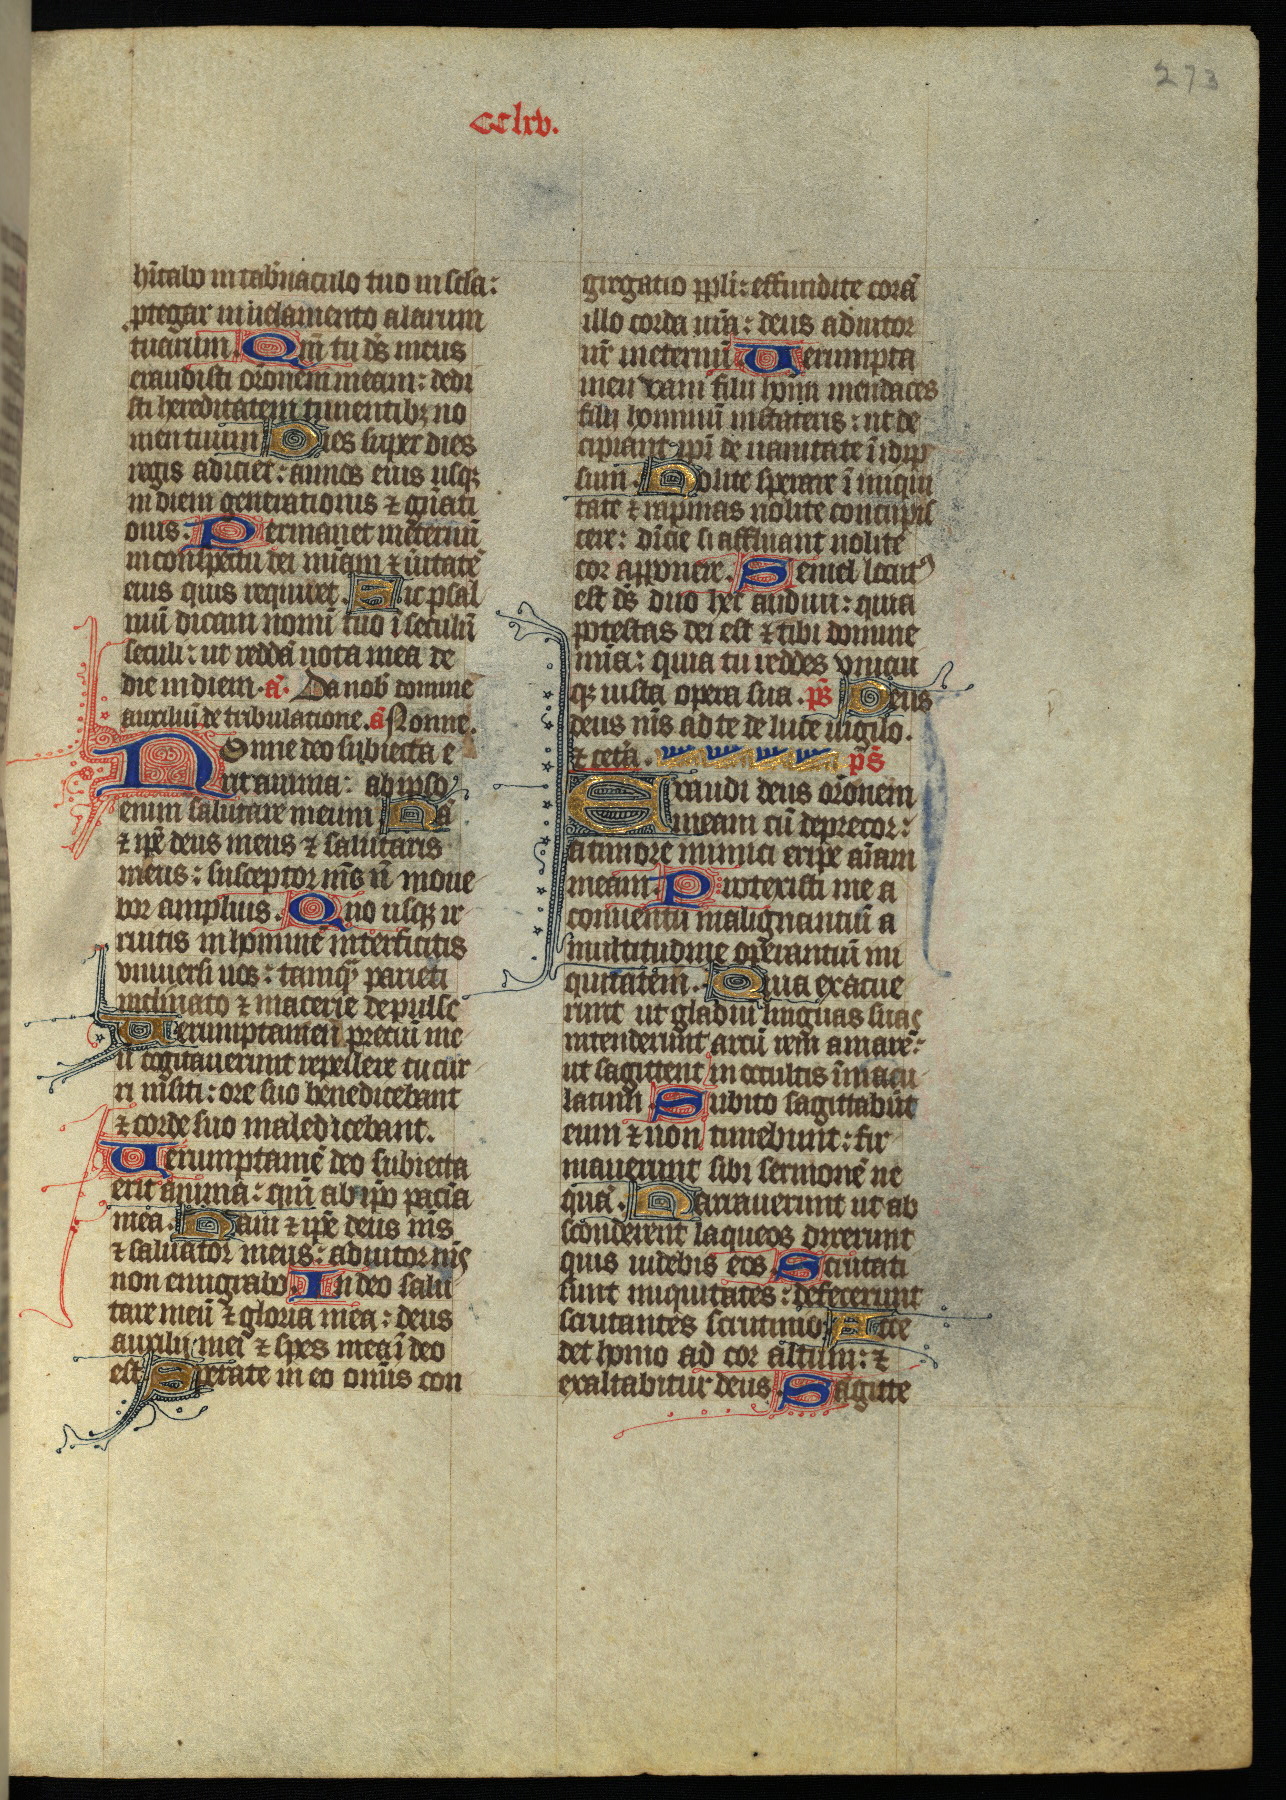 273
cclxv.
hītabo in tab̄naculo tuo in scl̄a:
ꝓtegar in uelamento alarum
tuarum. Qm̄ tu ds̄ meus
exaudisti or̄onem meam: dedi
sti hereditatem timentibꝫ no
men tuum. Dies super dies
regis adicies: annos eius usqꝫ
in diem generationis ⁊ gn̄ati
onis. Permanet in eternū
in conspectu dei mīam ⁊ ūitatē
eius quis requiret. Sic psal
mū dicam nomī tuo ī seculū
seculi: ut reddā uota mea de
die in diem. a᷑. Da nob̄ domine
auxiliū de tribulatione. a᷑ Nonne.
Nonne deo subiecta e
rit anima: ab ipso
enim salutare meum. Nā
⁊ ip̄e deus meus ⁊ salutaris
meus: susceptor ms̄ n̄ moue
bor amplius. Quo usqꝫ ir
ruitis in hominē interficitis
vniuersi uos: tamqꝫ parieti
inclinato ⁊ macerie depulse
Uerumptamen preciū me
ū cogitauerunt repellere cucur
ri in siti: ore suo benedicebant
⁊ corde suo maledicebant.
Uerumptamē deo subiecta
erit anima: qm̄ ab ip̄o pacīa
mea. Nam ⁊ ip̄e deus ms̄
⁊ saluator meus: adiutor ms̄
non emigrabo. In deo salu
tare meū ⁊ gloria mea: deus
auxilij mei ⁊ spes mea ī deo
est. Sperate in eo omīs con
gregatio ppl̄i: effundite corā
illo corda ur̄a: deus adiutor
nr̄ in eternū. Uerumpta
men vani filii hoīm mendaces
filij hominū in stateris: ut de
cipiant ip̄i de uanitate ī idip̄
sum. Nolite sperare ī iniqui
tate ⁊ rapinas nolite concupis
cere: diuicie si affluant nolite
cor apponere. Semel locutꝰ
est ds̄ duo hec audiui: quia
potestas dei est ⁊ tibi domine
mīa: quia tu reddes vnicui
qꝫ iusta opera sua. ps̄ Deus
deus ms̄ ad te de luce uigilo.
⁊ cetā. ps̄
Exaudi deus or̄onem
meam cū deprecor:
a timore inimici eripe aīam
meam. Protexisti me a
conuentu malignantiū a
multitudine operantiū ini
quitatem. Quia exacue
runt ut gladiū linguas suas
intenderunt arcū rem amarē:
ut sagittent in occultis īmacu
latum. Subito sagittabūt
eum ⁊ non timebunt: fir
mauerunt sibi sermonē ne
quā. Narrauerunt ut ab
sconderent laqueos dixerunt
quis uidebis eos. Scrutati
sunt iniquitates: defecerunt
scrutantes scrutinio. Acce
det homo ad cor altum: ⁊
exaltabitur deus. Sagitte